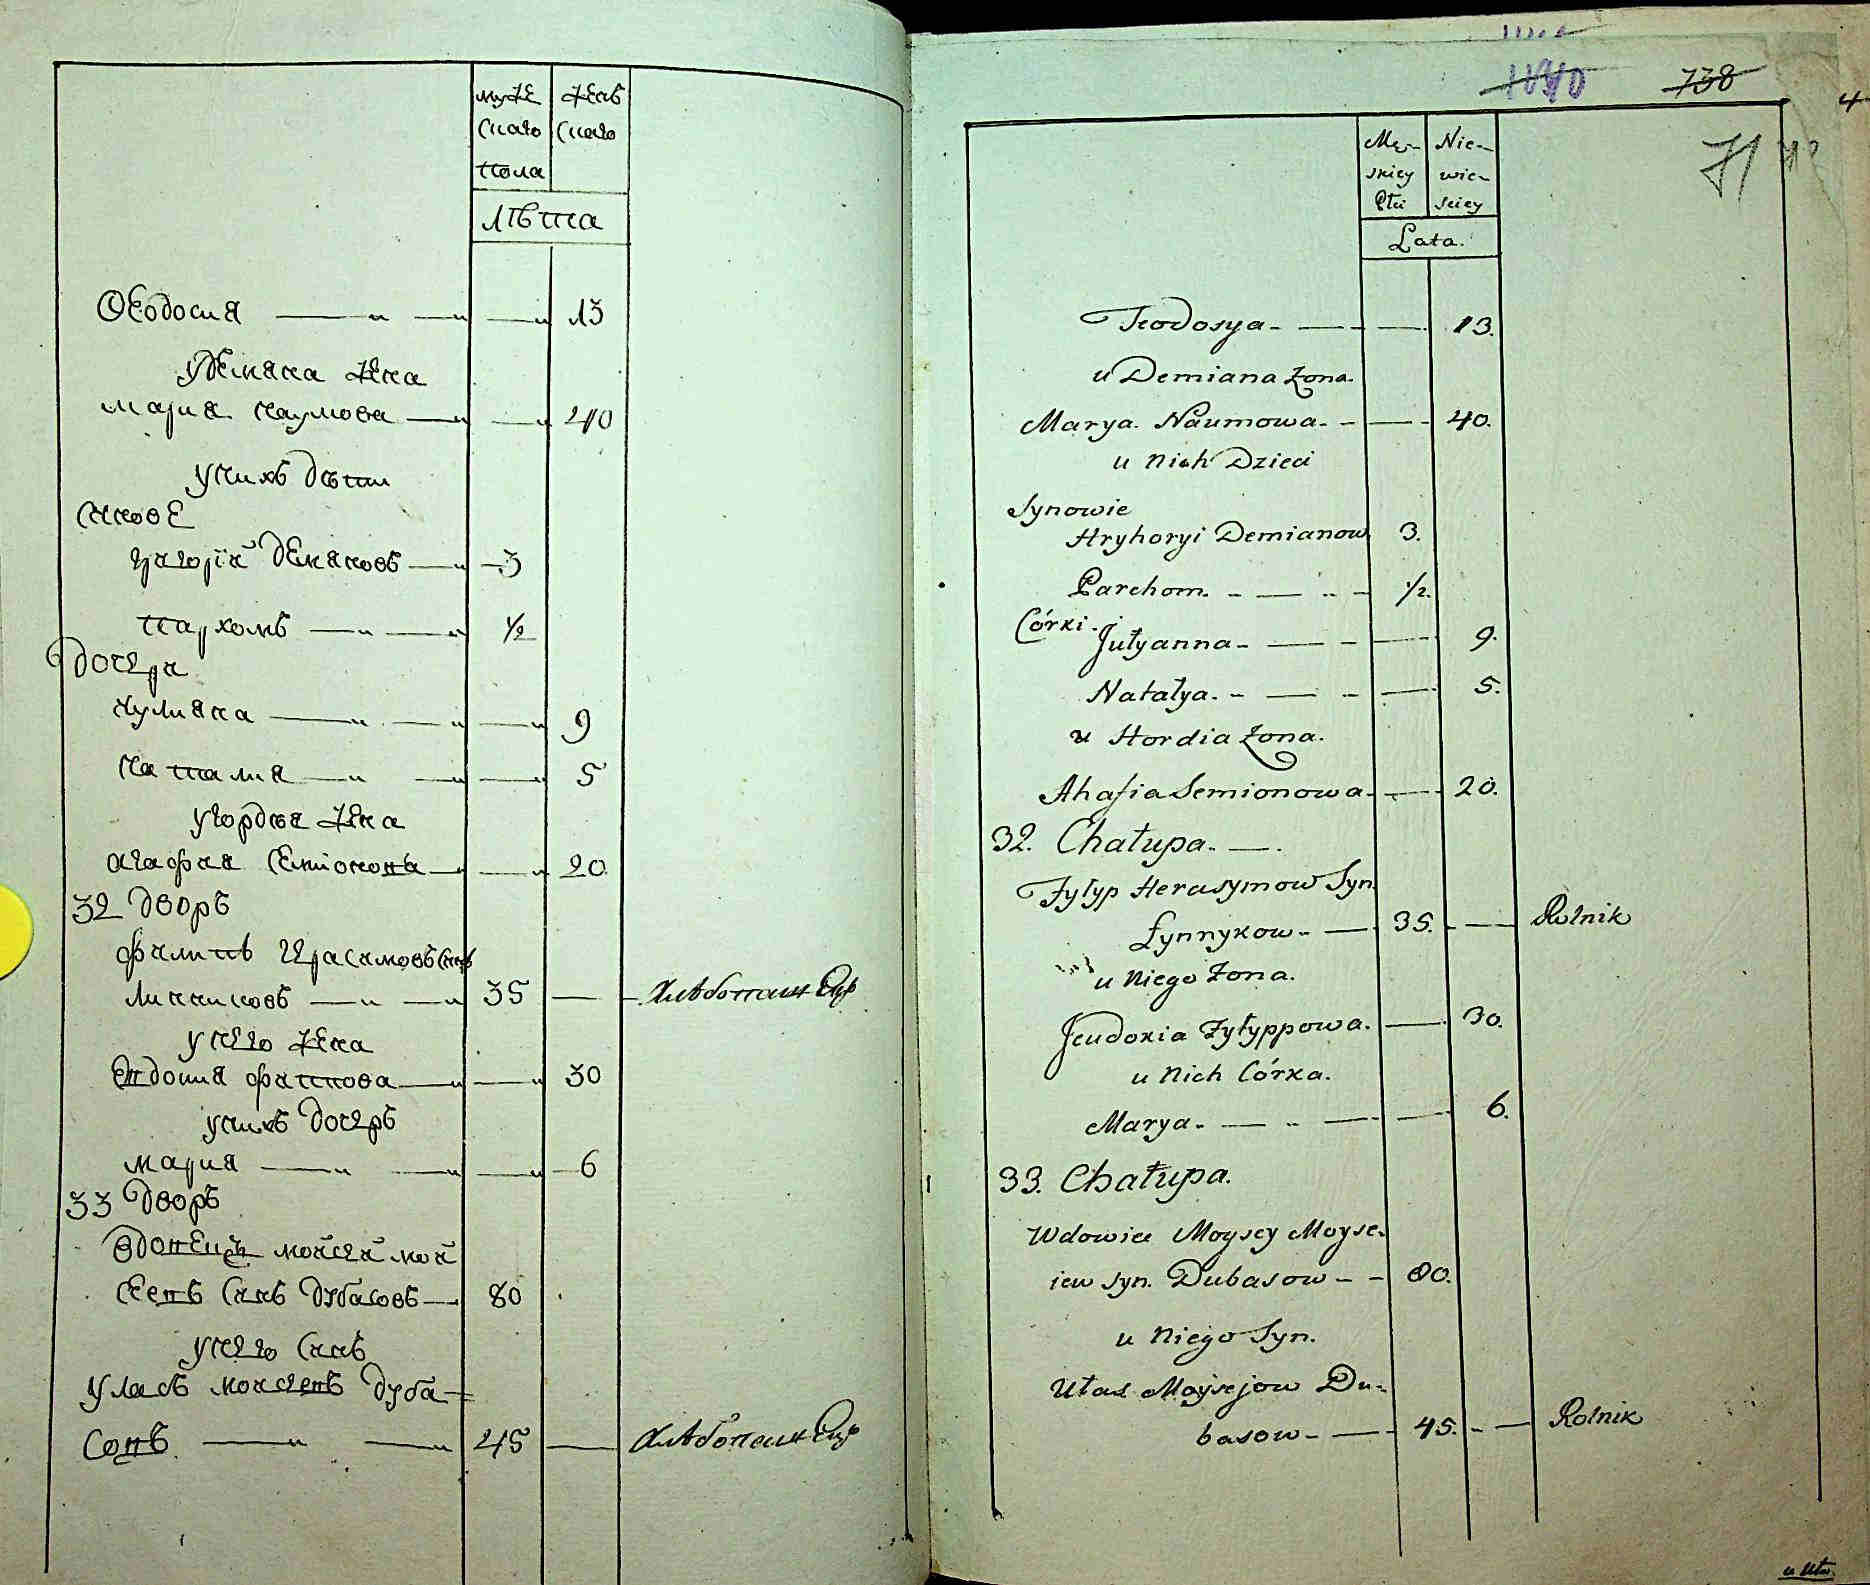 муже
скаго
пола
женъ
скаго
лѣта
Ѳеодосия 13
у демяна жена
мария наумова 40
у нихъ дѣти
синове
григорїй демяновъ 3
пархомъ 1/2
дочери
иулияна 9
наталия 5
у гордѣя жена
агафия семіонова 20
32 дворъ
филипъ герасимовъ синъ
линниковъ 35 хлѣбопашецъ
у него жена
евдокия филипова 30
у нихъ дочеръ
мария 6
33 дворъ
вдовецъ мойсей мой
сеевъ синъ дубасовъ 80
у него синъ
уласъ мойсеевъ дуба=
совъ 45 хлѣбопашецъ
738
71
Mę-
skiey
Płci
Nie-
wie-
sciey
Lata.
Teodosya 13.
u Demiana Żona.
Marya Naumowa 40.
u Nich Dzieci
Synowie
Hryhoryi Demianow 3.
Parchom 1/2.
Córki
Jułyanna 9.
Natałya 5.
u Hordia Żona.
Ahafia Semionowa 20.
32. Chałupa.
Fyłyp Herasymow Syn
Łynnykow 35. Rolnik
u Niego Żona.
Jeudokia Fyłyppowa 30.
u Nich Córka.
Marya 6.
33. Chałupa.
Wdowiec Moysey Moyse-
iew syn. Dubasow 80.
u Niego Syn.
Ułas Moysejow Du-
basow 45. Rolnik
u Uła